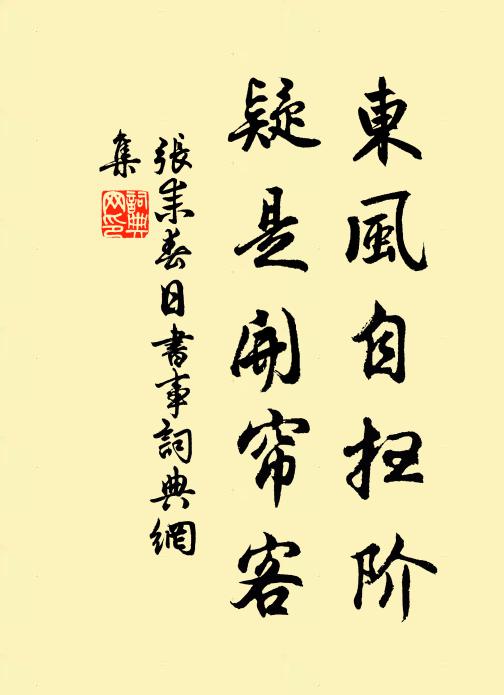 東風自扫阶
疑是開帘客
張耒春日書事詞典網
集
詞典
网印